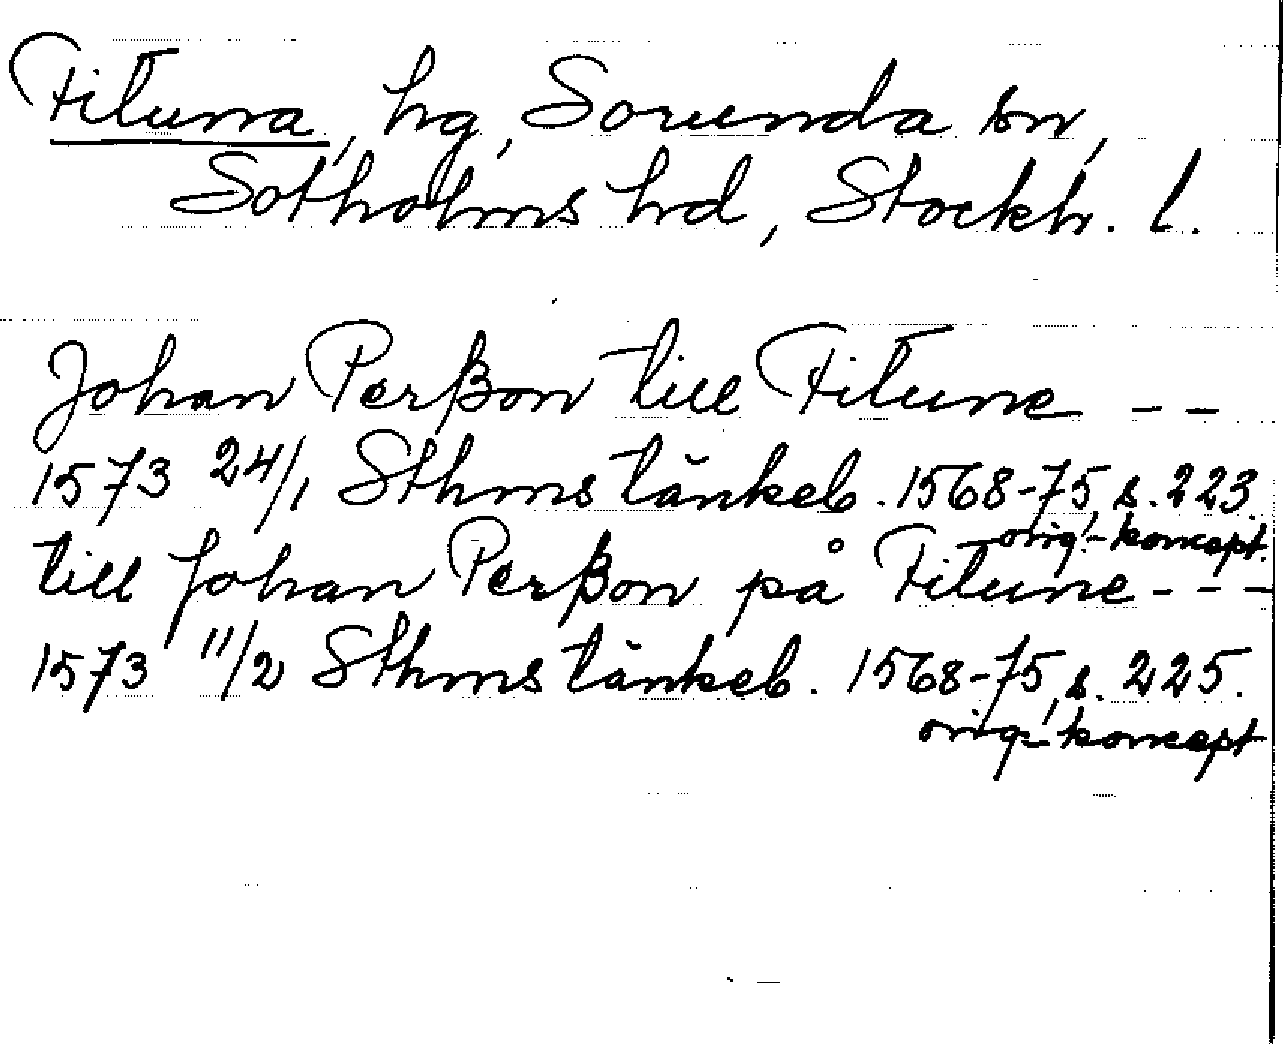 Fituna, hg, Sorunda sn,
Sotholms hd, Stockh. l.
Johan Perßon till Fitune - -
1573 24/1 Sthms tänkeb. 1568-75, s. 223.
orig.-koncept.
till Johan Perßon på Fitune - - -
1573 11/2 Sthms tänkeb. 1568-75, s. 225.
orig.-koncept